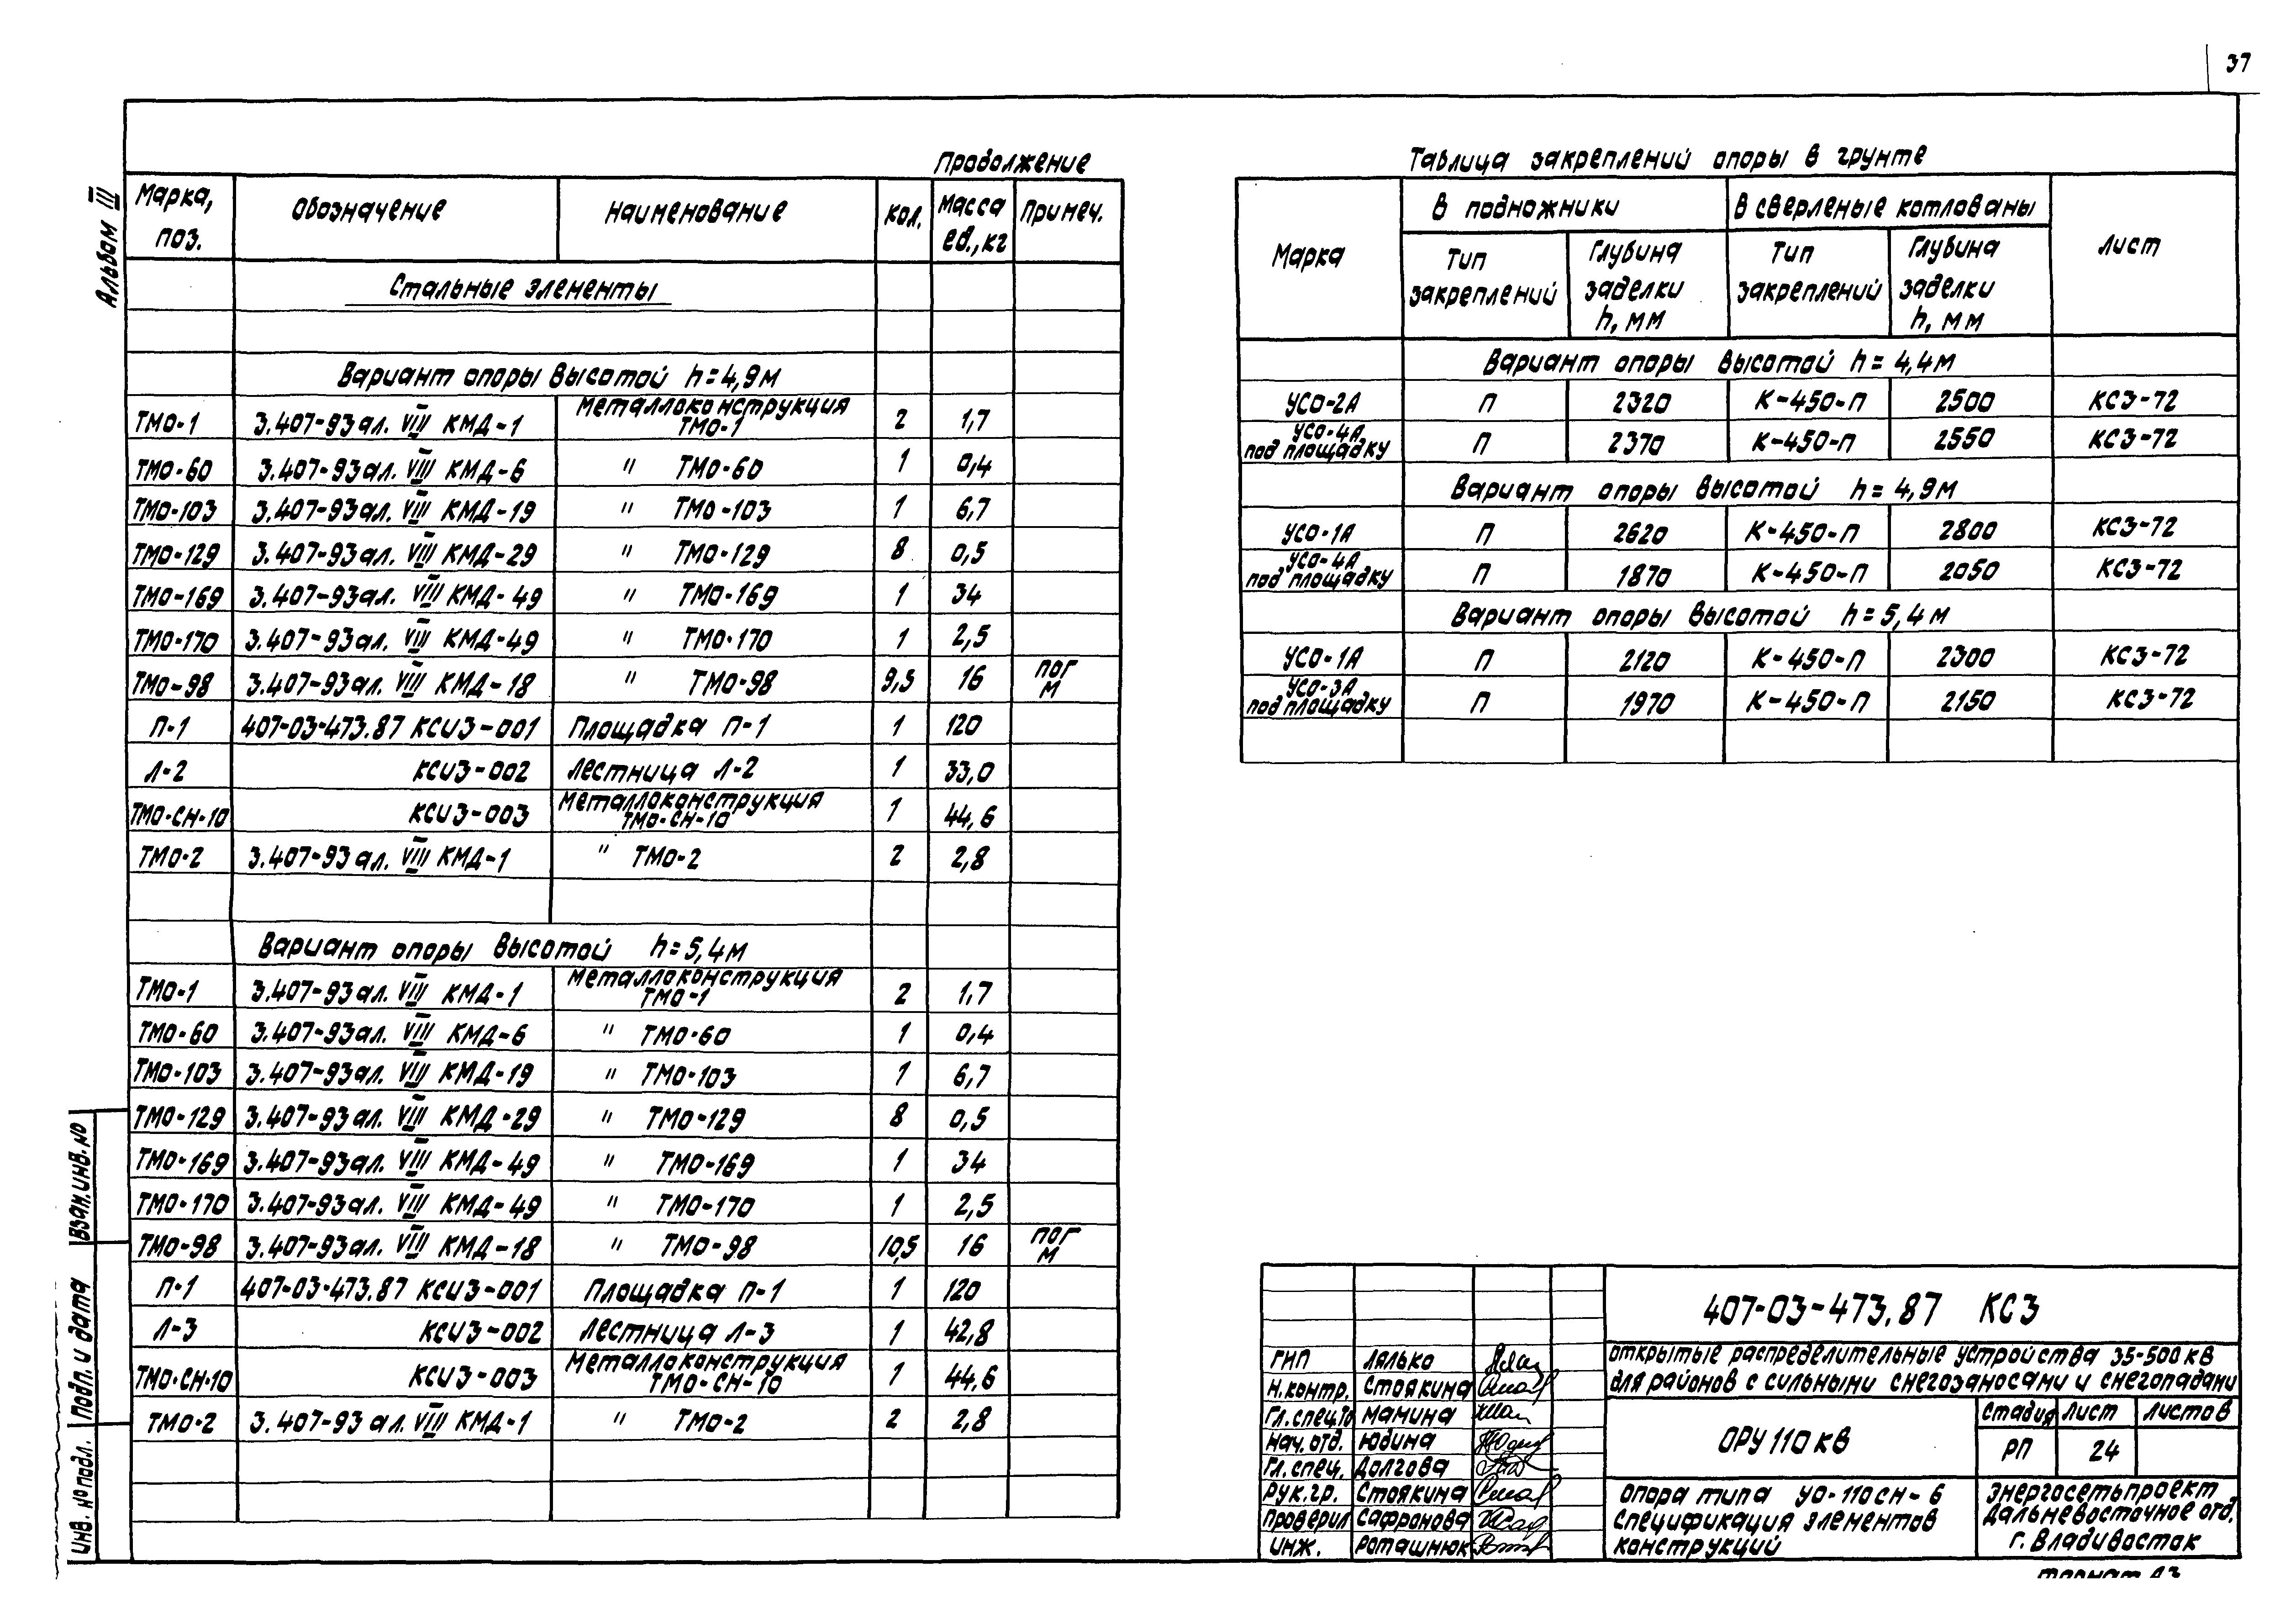 37
Альбом III
Продолжение
Марка, поз. Обозначение Наименование Кол. Масса ед., кг Примеч.
Стальные элементы
Вариант опоры высотой h=4,9м
ТМО-1 3.407-93 ал. VIII КМД-1 Металлоконструкция ТМО-1 2 1,7
ТМО-60 3.407-93 ал. VIII КМД-6 " ТМО-60 1 0,4
ТМО-103 3.407-93 ал. VIII КМД-19 " ТМО-103 1 6,7
ТМО-129 3.407-93 ал. VIII КМД-29 " ТМО-129 8 0,5
ТМО-169 3.407-93 ал. VIII КМД-49 " ТМО-169 1 34
ТМО-170 3.407-93 ал. VIII КМД-49 " ТМО-170 1 2,5
ТМО-98 3.407-93 ал. VIII КМД-18 " ТМО-98 9,5 16 пог м
П-1 407-03-473.87 КСИ3-001 Площадка П-1 1 120
Л-2 КСИ3-002 Лестница Л-2 1 33,0
ТМО-СН-10 КСИ3-003 Металлоконструкция ТМО-СН-10 1 44,6
ТМО-2 3.407-93 ал. VIII КМД-1 " ТМО-2 2 2,8
Вариант опоры высотой h=5,4м
ТМО-1 3.407-93 ал. VIII КМД-1 Металлоконструкция ТМО-1 2 1,7
ТМО-60 3.407-93 ал. VIII КМД-6 " ТМО-60 1 0,4
ТМО-103 3.407-93 ал. VIII КМД-19 " ТМО-103 1 6,7
ТМО-129 3.407-93 ал. VIII КМД-29 " ТМО-129 8 0,5
ТМО-169 3.407-93 ал. VIII КМД-49 " ТМО-169 1 34
ТМО-170 3.407-93 ал. VIII КМД-49 " ТМО-170 1 2,5
ТМО-98 3.407-93 ал. VIII КМД-18 " ТМО-98 10,5 16 пог м
П-1 407-03-473.87 КСИ3-001 Площадка П-1 1 120
Л-3 КСИ3-002 Лестница Л-3 1 42,8
ТМО-СН-10 КСИ3-003 Металлоконструкция ТМО-СН-10 1 44,6
ТМО-2 3.407-93 ал. VIII КМД-1 " ТМО-2 2 2,8
Взам. инв. №
Подп. и дата
Инв. № подл.
Таблица закреплений опоры в грунте
Марка В подножники В сверленые котлованы Лист
Тип закреплений Глубина заделки h, мм Тип закреплений Глубина заделки h, мм
Вариант опоры высотой h=4,4м
УСО-2А П 2320 К-450-П 2500 КС3-72
УСО-4А под площадку П 2370 К-450-П 2550 КС3-72
Вариант опоры высотой h=4,9м
УСО-1А П 2620 К-450-П 2800 КС3-72
УСО-4А под площадку П 1870 К-450-П 2050 КС3-72
Вариант опоры высотой h=5,4м
УСО-1А П 2120 К-450-П 2300 КС3-72
УСО-3А под площадку П 1970 К-450-П 2150 КС3-72
407-03-473.87 КС3
Открытые распределительные устройства 35-500 кв
для районов с сильными снегозаносами и снегопадами
ГИП Лялько
Н.контр. Стоякина
Гл.спец.ТО Мамина
Нач.отд. Юдина
Гл.спец. Долгова
Рук.гр. Стоякина
Проверил Сафронова
Инж. Роташнюк
ОРУ 110 кв
Стадия Лист Листов
РП 24
Опора типа УО-110СН-6
Спецификация элементов
конструкций
Энергосетьпроект
Дальневосточное отд.
г. Владивосток
Формат А3